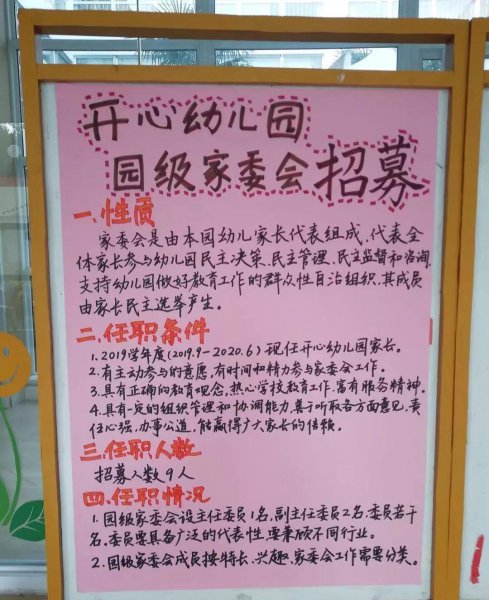 开心幼儿园
园级家委会招募
一.性质
家委会是由本园幼儿家长代表组成,代表全
体家长参与幼儿园民主决策、民主管理、民主监督和咨询,
支持幼儿园做好教育工作的群众性自治组织,其成员
由家长民主选举产生。
二.任职条件
1.2019学年度(2019.9-2020.6)现任开心幼儿园家长。
2.有主动参与的意愿,有时间和精力参与家委会工作。
3.具有正确的教育观念,热心学校教育工作,富有服务精神。
4.具有一定的组织管理和协调能力,善于听取各方面意见,责
任心强,办事公道,能赢得广大家长的信赖。
三.任职人数
招募人数9人
四.任职情况
1.园级家委会设主任委员1名,副主任委员2名,委员若干
名,委员要具备广泛的代表性,要兼顾不同行业。
2.园级家委会成员按特长、兴趣、家委会工作需要分类。